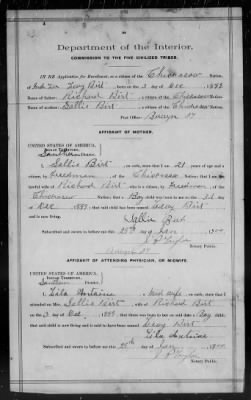 Department of the Interior.
COMMISSION TO THE FIVE CIVILIZED TRIBES.
IN RE Application for Enrollment, as a citizen of the Chickasaw Nation,
of Levy Birt, born on the 3 day of Dec, 1899
Name of Father: Richard Birt, a citizen of the Chickasaw Nation.
Name of Mother: Sallie Birt, a citizen of the Chickasaw Nation.
Post Office:
AFFIDAVIT OF MOTHER.
UNITED STATES OF AMERICA,
INDIAN TERRITORY,
Southern
I, Sallie Birt, on oath, state that I am 21 years of age and a
citizen, by Freedman, of the Chickasaw Nation; that I am the
lawful wife of Richard Birt, who is a citizen, by Freedman, of the
Chickasaw Nation; that a Boy child was born to me on 3d
of Dec, 1899, that said child has been named Levy Birt,
and is now living.
Sallie Birt
Subscribed and sworn to before me this 25th day of Jan, 1900
Notary Public.
AFFIDAVIT OF ATTENDING PHYSICIAN, OR MIDWIFE.
UNITED STATES OF AMERICA,
INDIAN TERRITORY,
Southern
I, Lila, a Mid wife, on oath, state that I
attended on Mrs. Sallie Birt, wife of Richard Birt
on the 3 day of Dec, 1899, that there was born to her on said date a Boy child;
that said child is now living and is said to have been named Levy Birt
Lila
Subscribed and sworn to before me this 25th day of Jan, 1900
Notary Public.